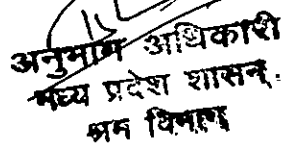 अनुभाग अधिकारी
मध्य प्रदेश शासन.
श्रम विभाग